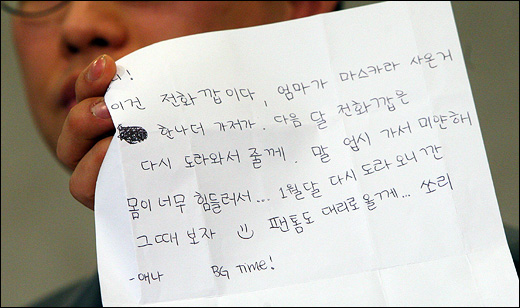 !
이건 전화깝이다, 엄마가 마스카라 사온거
한나더 가저가. 다음 달 전화깝은
다시 도라와서 줄께. 말 업시 가서 미얀해
몸이 너무 힘들러서... 1월달 다시 도라오니깐
그때 보자 팬톰도 대리로 올께... 쏘리
-애나 BG Time!